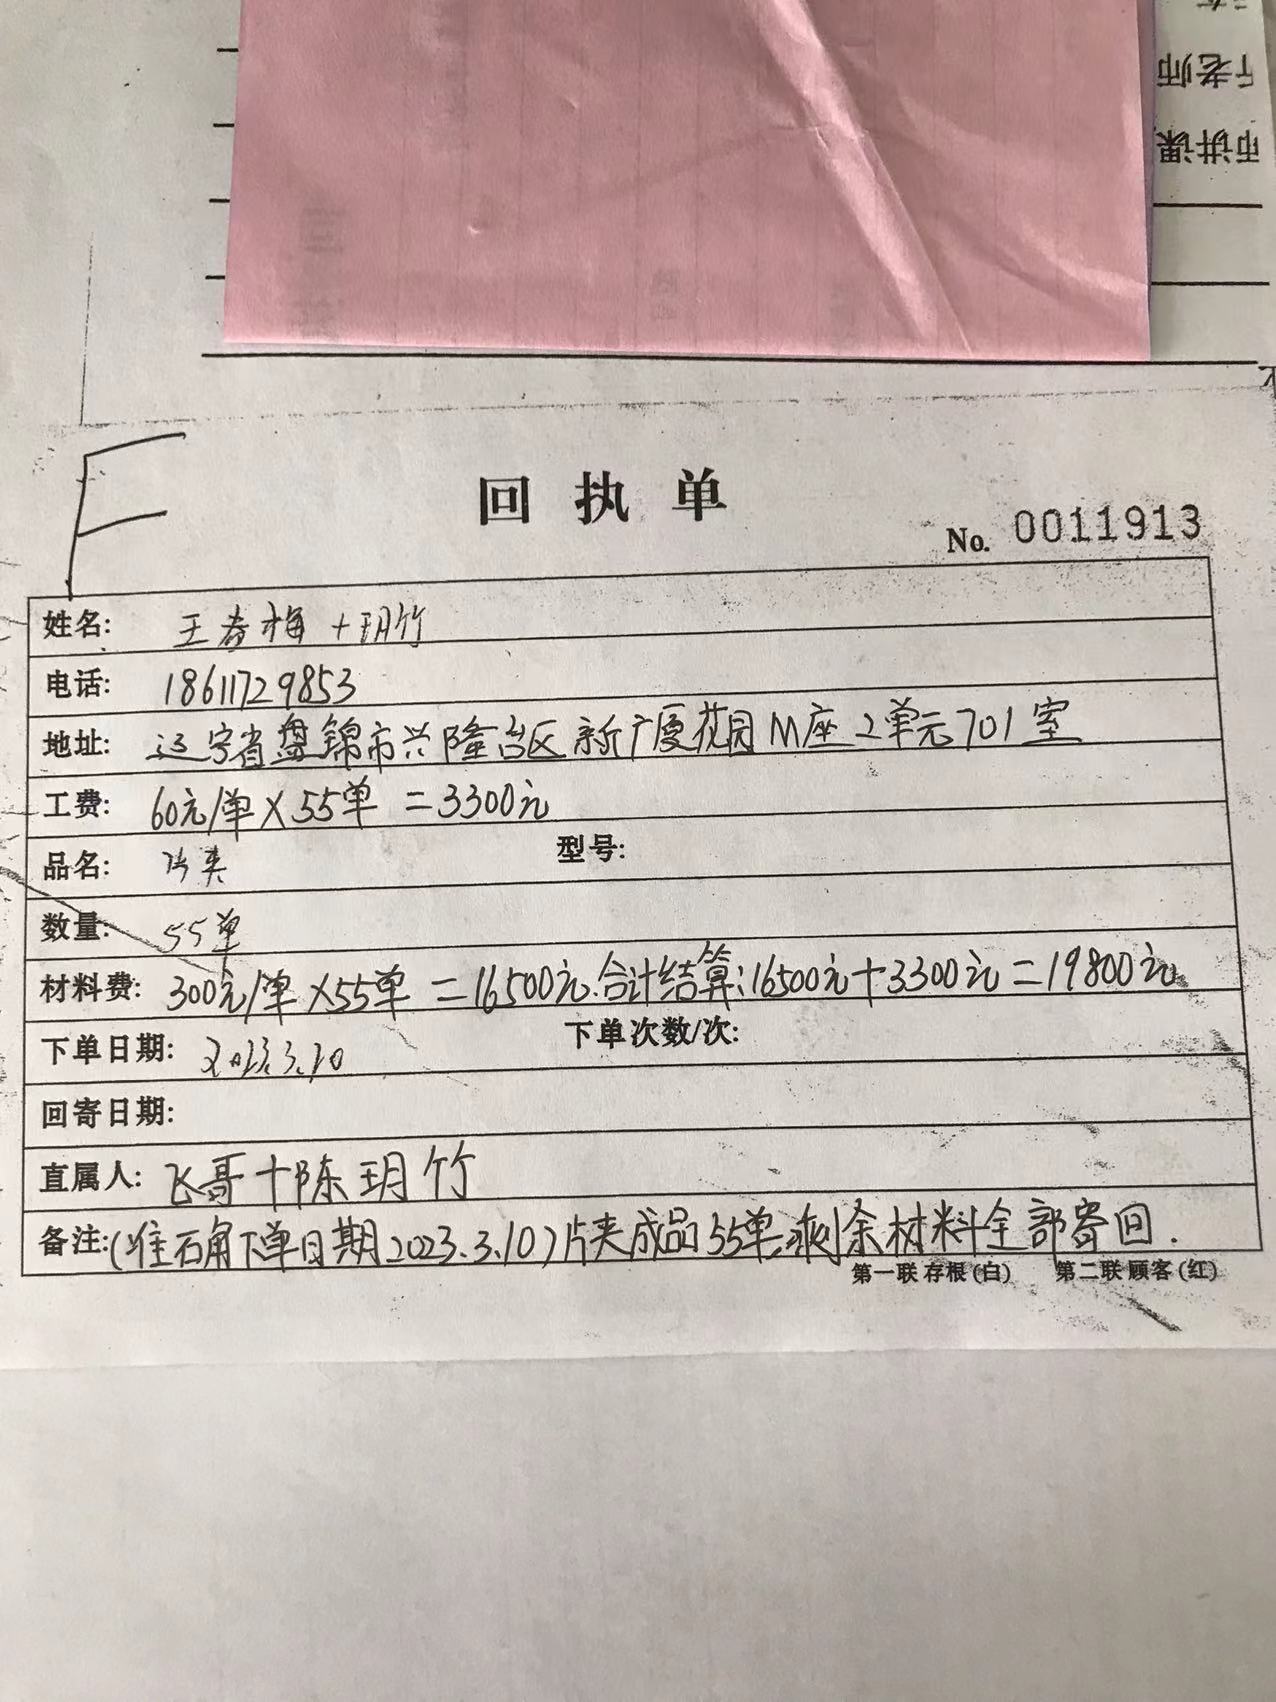 老师
讲课
回执单
No. 0011913
姓名: 王春梅+玥竹
电话: 18611729853
地址: 辽宁省盘锦市兴隆台区新广厦花园M座2单元701室
工费: 60元/单×55单=3300元
品名: 片夹 型号:
数量: 55单
材料费: 300元/单×55单=16500元.合计结算:16500元+3300元=19800元
下单日期: 2023.3.10 下单次数/次:
回寄日期:
直属人: 飞哥+陈玥竹
备注:(准石角下单日期2023.3.10)片夹成品55单,剩余材料全部寄回.
第一联 存根(白) 第二联 顾客(红)